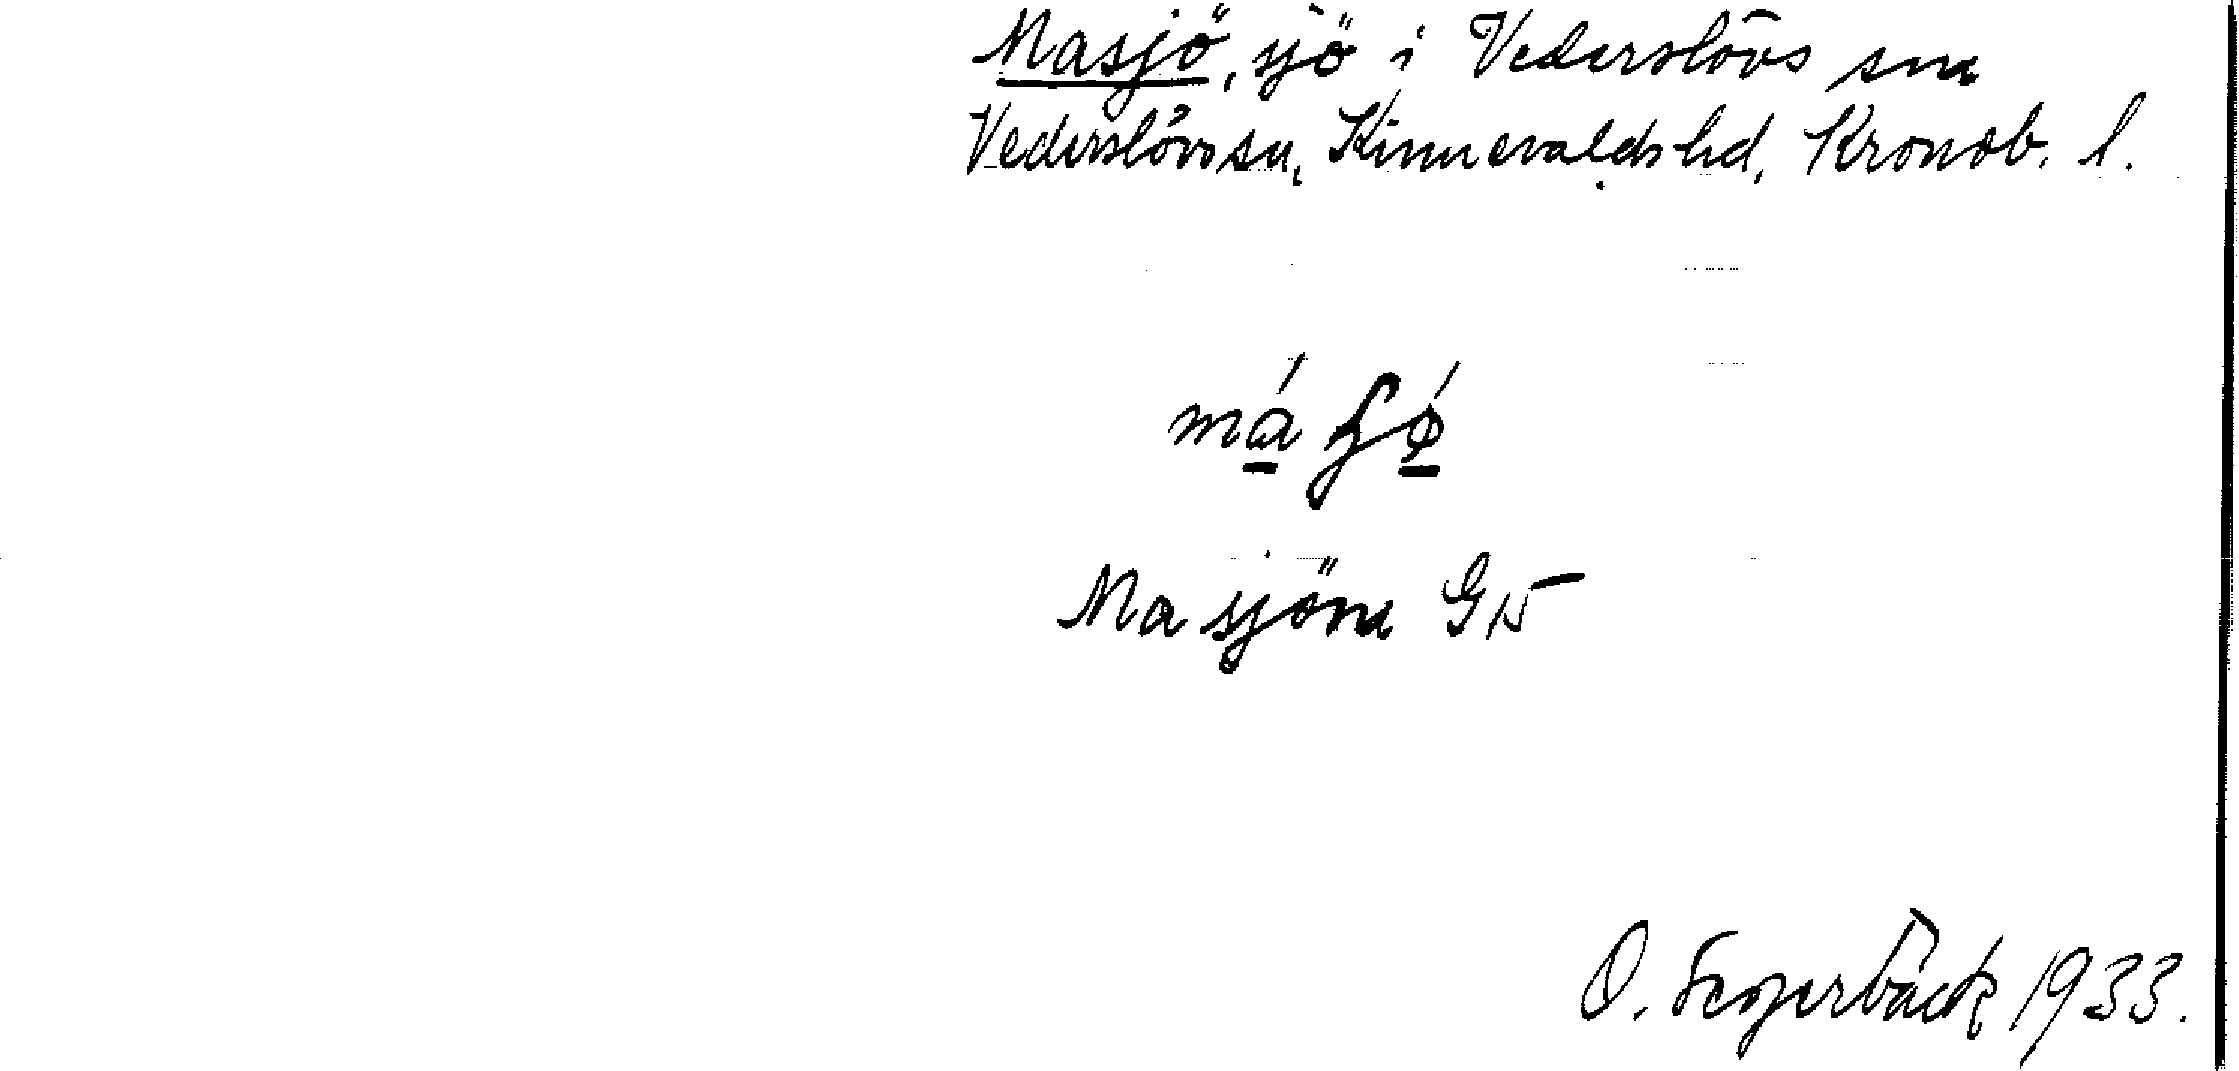 Masjö, sjö i Vederslövs sn
Vederslövs sn, Kinnevalds hd, Kronob. l.
má ʃǿ
Masjön G 15
O. Segerbäck 1933.